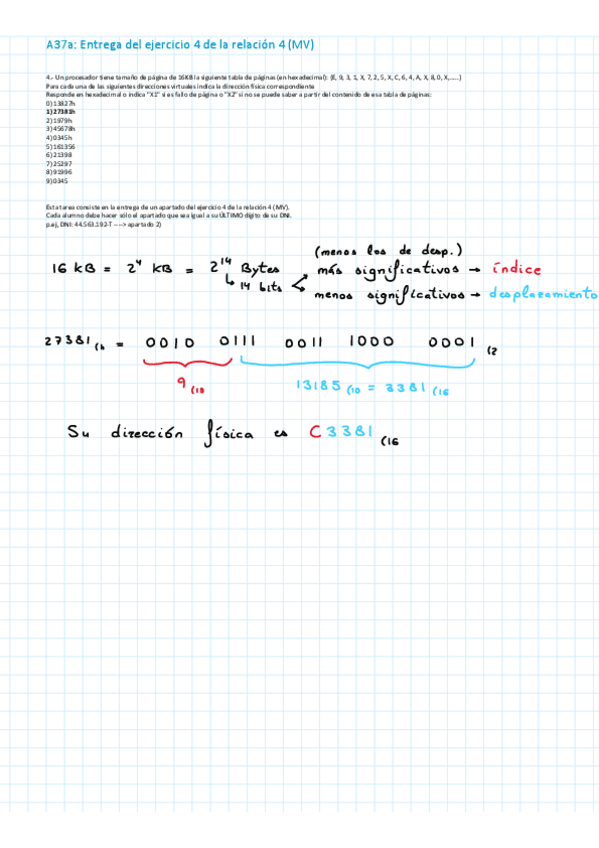 A37a: Entrega del ejercicio 4 de la relación 4 (MV)
4.- Un procesador tiene tamaño de página de 16KB la siguiente tabla de páginas (en hexadecimal): (E, 9, 3, 1, X, 7, 2, 5, X, C, 6, 4, A, X, 8, 0, X,.....)
Para cada una de las siguientes direcciones virtuales indica la dirección física correspondiente
Responde en hexadecimal o indica "X1" si es fallo de página o "X2" si no se puede saber a partir del contenido de esa tabla de páginas:
0)13827h
1)27381h
2)1979h
3)45678h
4)0345h
5)161356
6)21398
7)25297
8)91996
9)0345
Esta tarea consiste en la entrega de un apartado del ejercicio 4 de la relación 4 (MV).
Cada alumno debe hacer sólo el apartado que sea igual a su ÚLTIMO dígito de su DNI.
p.ej, DNI: 44.563.192-T ----> apartado 2)
(menos los de desp.)
16 kB = 2⁴ kB = 2¹⁴ Bytes más significativos → índice
↳ 14 bits menos significativos → desplazamiento
27381(h = 0010 0111 0011 1000 0001 (2
9 (10 13185 (10 = 3381 (16
Su dirección física es C3381 (16